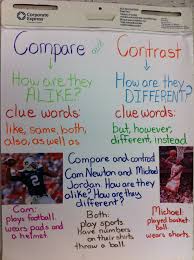 Corporate Express
Compare and Contrast
How are they ALIKE?
How are they DIFFERENT?
clue words:
like, same, both,
also, as well as
clue words:
but, however,
different, instead
Compare and contrast
Cam Newton and Michael
Jordan. How are they
alike? How are they
different?
Cam:
plays football.
wears pads and
a helmet.
Both:
play sports
Have numbers
on their shirts
throw a ball.
Michael:
played basket
ball
wears shorts.